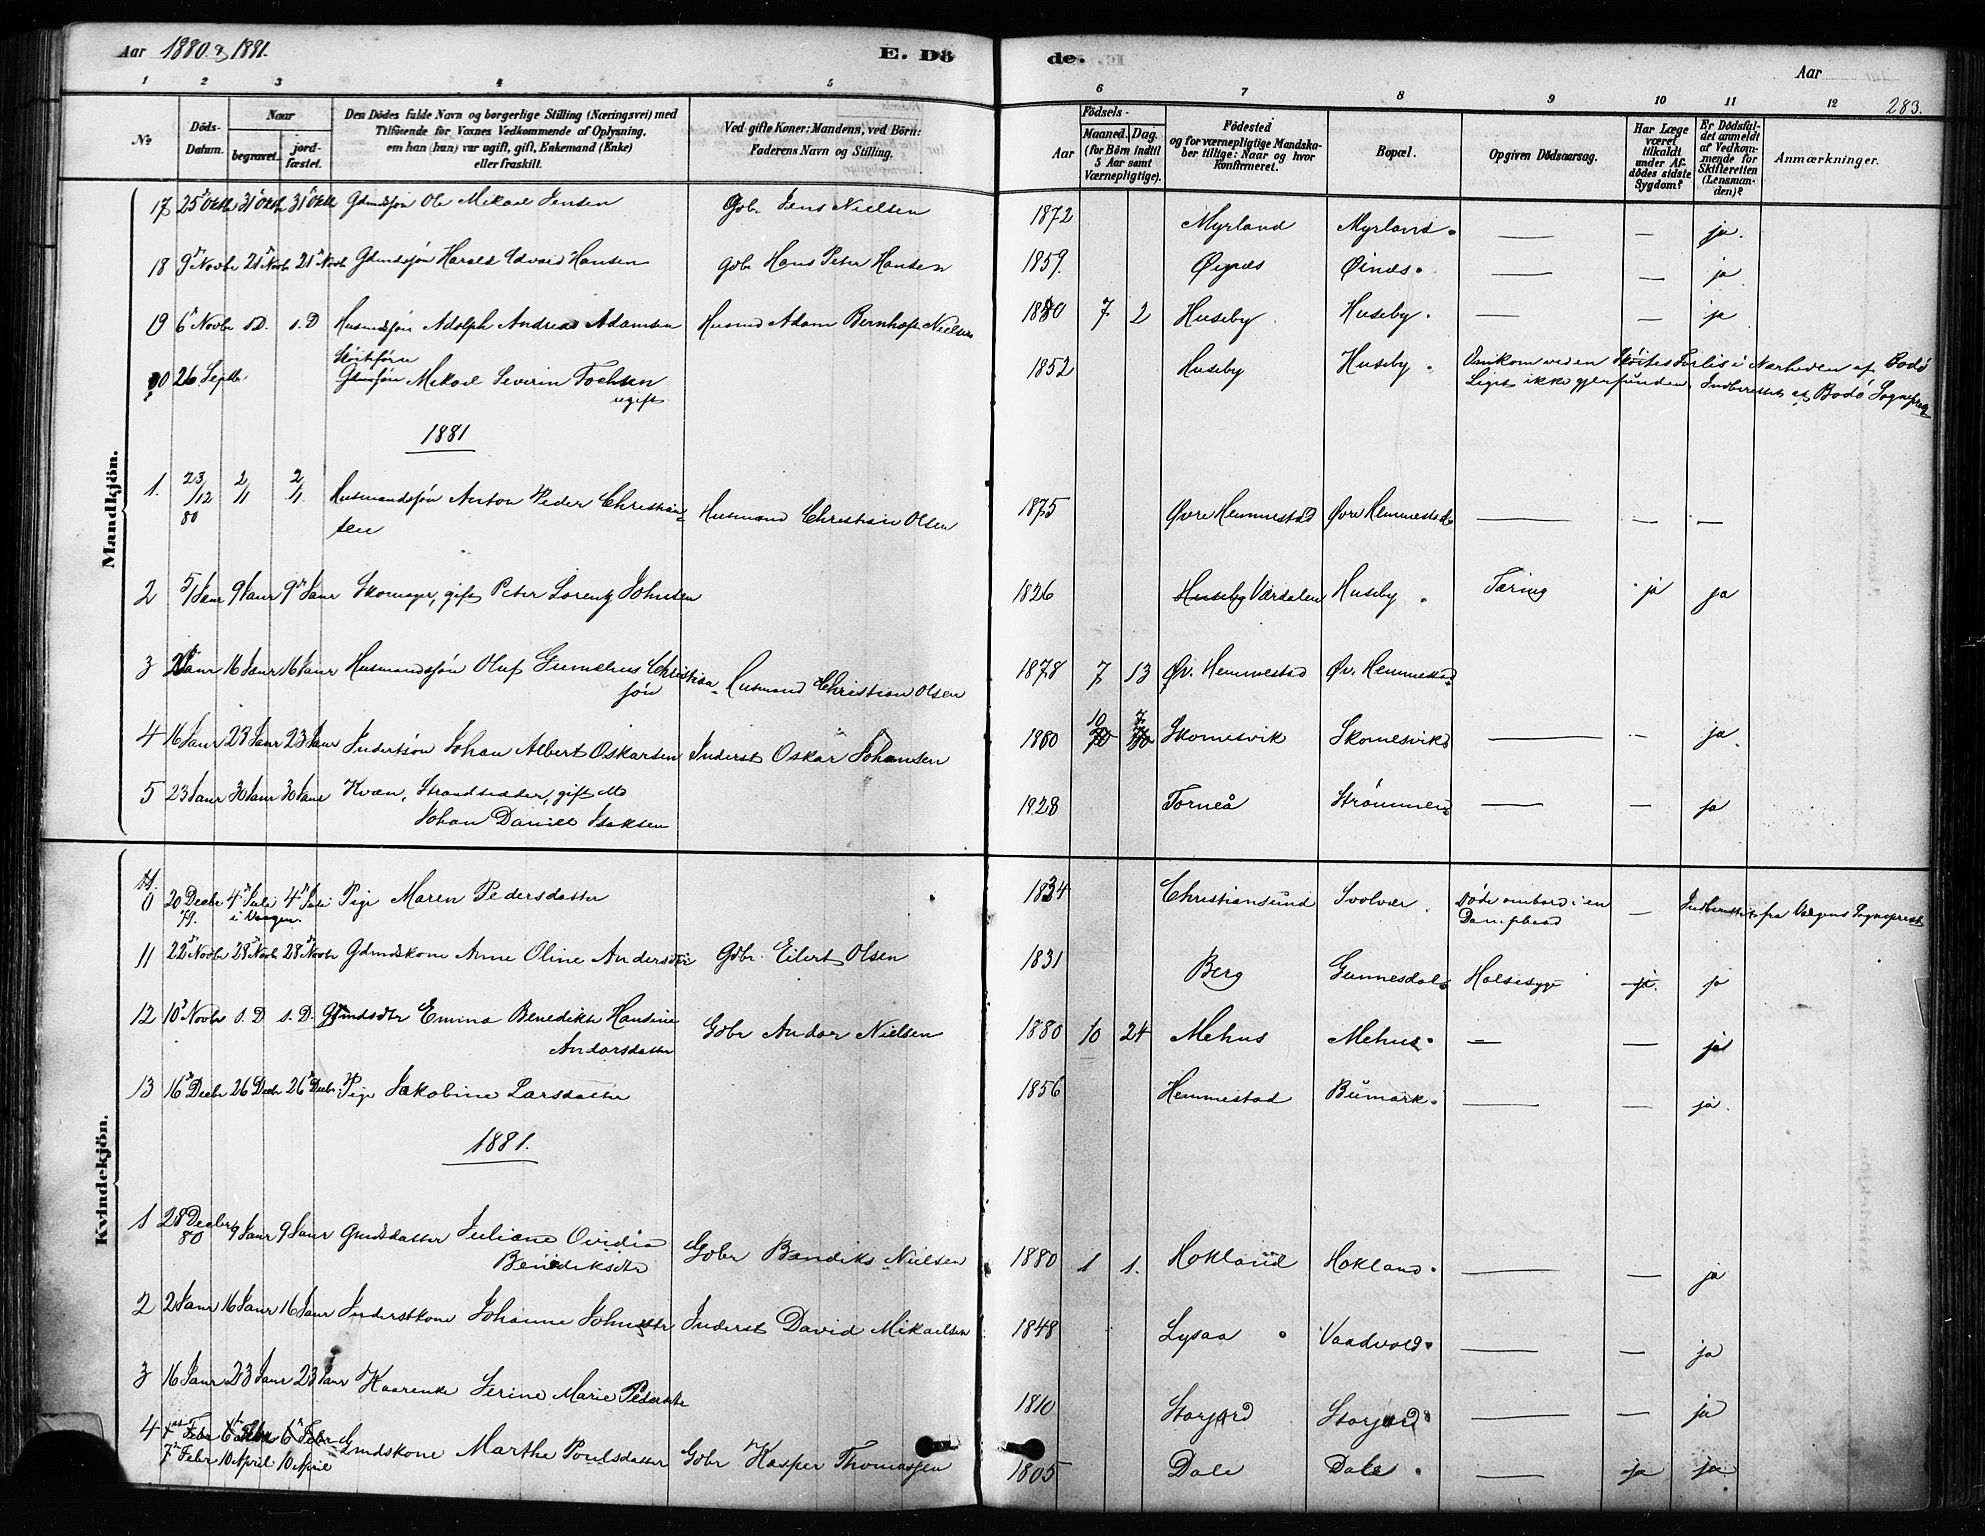 Aar 1880 & 1881.
E. Dö
de.
Aar
283.
1 2 3 4 5 6 7 8 9 10 11 12
No
Döds-Datum.
Naar
begravet.
jord-fæstet.
Den Dödes fulde Navn og borgerlige Stilling (Næringsvei) med
Tilföiende for Voxnes Vedkommende af Oplysning,
om han (hun) var ugift, gift, Enkemand (Enke)
eller fraskilt.
Ved gifte Koner: Mandens, ved Börn:
Faderens Navn og Stilling.
Födsels-
Aar
Maaned. Dag.
(for Börn indtil
5 Aar samt
Værnepligtige).
Födested
og for værnepligtige Mandska-
ber tillige: Naar og hvor
konfirmeret.
Bopæl.
Opgiven Dödsaarsag.
Har Læge
været
tilkaldt
under Af-
dödes sidste
Sygdom?
Er Dödsfal-
det anmeldt
af Vedkom-
mende for
Skifteretten
(Lensman-
den)?
Anmærkninger.
Mandkjön.
17 25 Oktb 31 Oktb 31 Oktb Gdmdsøn Ole Mikael Jensen Gdbr Jens Nielsen 1872 Myrland Myrland. — — ja.
18 9 Novbr 21 Novbr 21 Novbr Gdmdsøn Harald Edvard Hansen Gdbr Hans Peter Hansen 1859. Øynæs Øinæs. — — ja
19 6 Novbr s.D. s.D Husmdsøn Adolph Andreas Adamsen Husmd Adam Bernhoft Nielsen 1880 7 2 Huseby Huseby. — — ja
20 26 Septb Skøitefører
Gdmsøn Mikael Severin Tochsen
ugift 1852 Huseby Huseby. Omkom ved en Skøites Forlis i Nærheden af Bodø
Liget ikke gjenfunden, Indberettet af Bodø Sognepræst
1881
1. 23/12 80 2/1 2/1 Husmandssøn Anton Peder Christian-
sen Husmand Christian Olsen 1875 Øvre Hemmestad Øvre Hemmestad. — — —
2 5/1 Janr 9 Janr 9 Janr Skomager, gift Peter Lorentz Johnsen 1826 Huseby Værdalen Huseby. Tæring ja ja
3 Janr 16 Janr 16 Janr Husmandssøn Oluf Gumelius Christian-
søn Husmand Christian Olsen 1878 7 13 Øv. Hemmestad Øv. Hemmestad.
4 16 Janr 23 Janr 23 Janr Inderstsøn Johan Albert Oskarsen Inderst Oskar Johansen 1880 10 7 Skomesvik Skomesvik. — — ja.
5 23 Janr 30 Janr 30 Janr Kvæn, Strandsidder, gift Md
Johan Daniel Isaksen 1828 Torneå Strømmen. — — ja
Kvindekjön.
10 20 Decbr 79. 4 Juli i Vaagen. 4 Juli Pige Maren Pedersdatter 1834 Christiansund Svolvær. Døde ombord i en
Dampbaad — Indberettet fra Vaagens Sogneprest
11 22 Novbr 28 Novbr 28 Novbr Gdmdskone Anne Oline Andersdtr Gdbr. Eilert Olsen 1831 Berg Gunnesdal. Halsesyge ja. ja
12 10 Novbr s.D s.D. Gdmdsdtr Emina Benedikte Hansine
Andorsdatter Gdbr Andor Nielsen 1880 10 24 Mehus Mehus. — — ja
13 16 Decbr 26 Decbr 26 Decbr Pige Jakobine Larsdatter 1856 Hemmestad Bumark. — — ja.
1881.
1 28 Decbr 80 9 Janr 9 Janr Gmdsdatter Juliane Ovidia
Benediksdtr Gdbr Bendiks Nielsen 1880 1 1. Hokland Hokland. — — ja
2 2 Janr 16 Janr 16 Janr Inderstkone Johanne Johnsdtr Inderst David Mikaelsen 1848 Lysaa Vaadvold. — — ja
3 16 Janr 23 Janr 23 Janr Kaarenke Serine Marie Pedersdtr 1810 Storjord Storjord. — — ja
4 7 Febr 10 April 10 April Gmdskone Marthe Poulsdatter Gdbr Kasper Thomassen 1805 Dale Dale. — ja ja